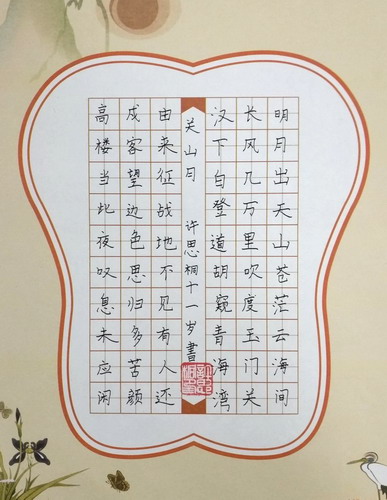 明月出天山苍茫云海间
长风几万里吹度玉门关
汉下白登道胡窥青海湾
关山月 许思桐十一岁書
由来征战地不见有人还
戍客望边色思归多苦颜
高楼当此夜叹息未应闲